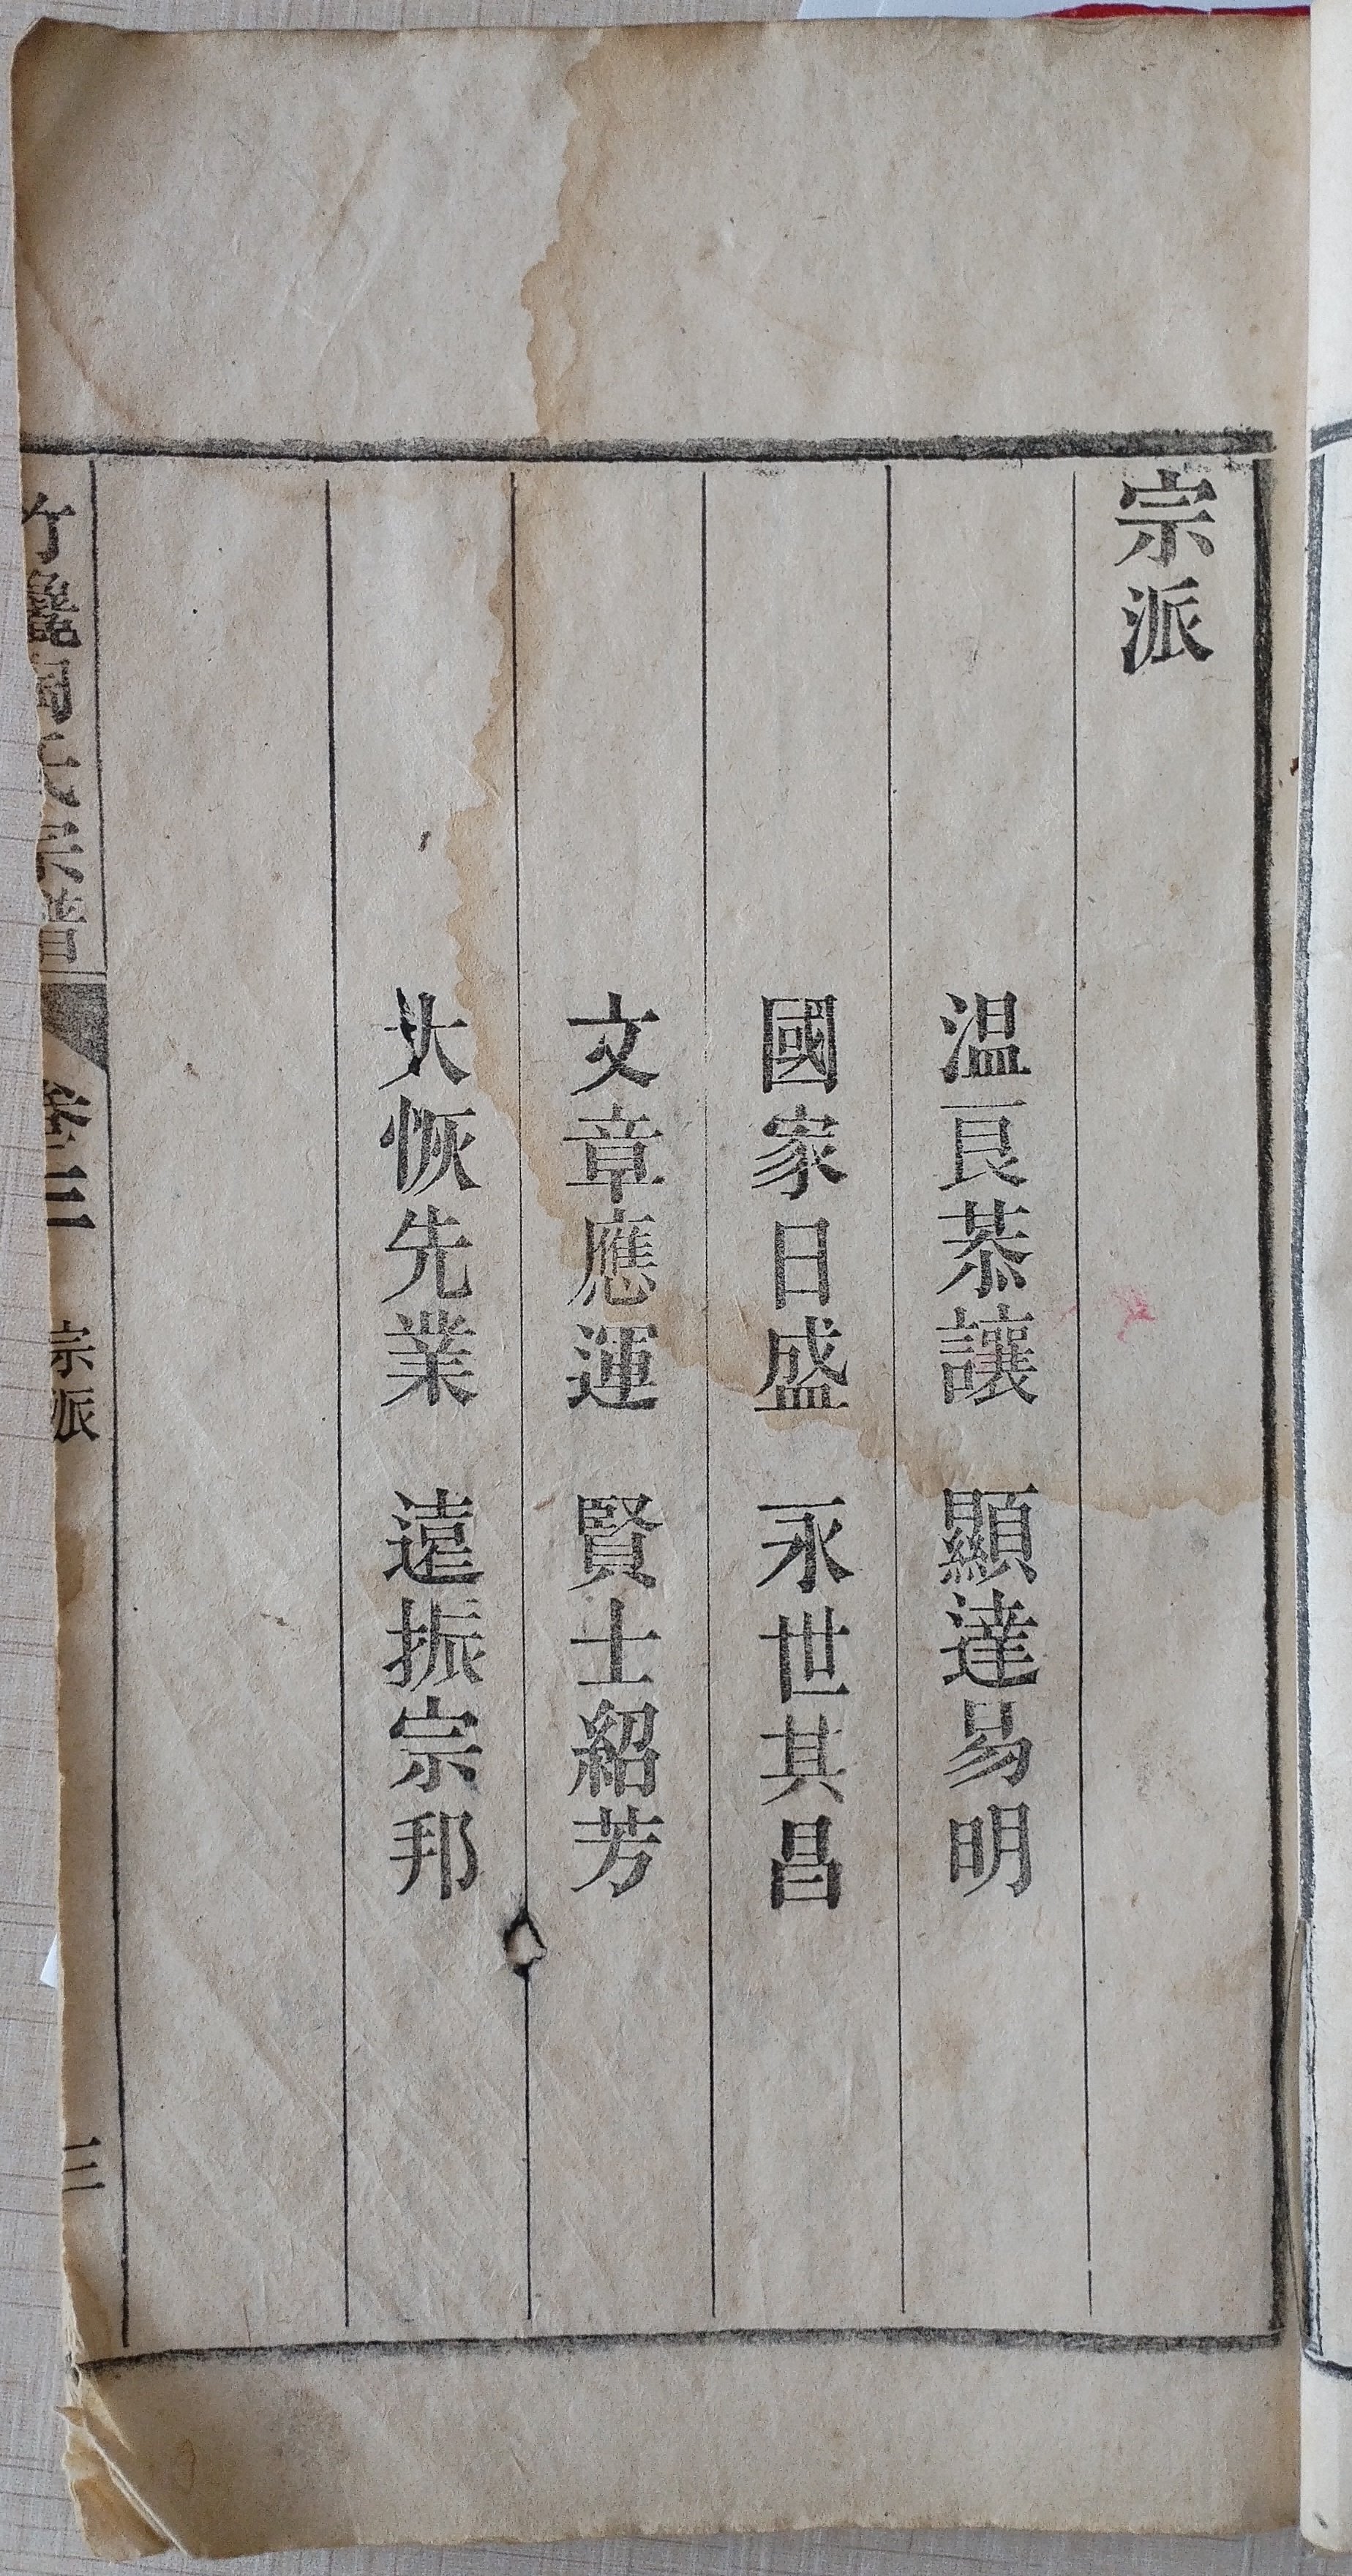 宗派
温良恭讓 顯達易明
國家日盛 永世其昌
文章應運 賢士紹芳
大恢先業 遠振宗邦
周氏宗譜 卷三 宗派 三